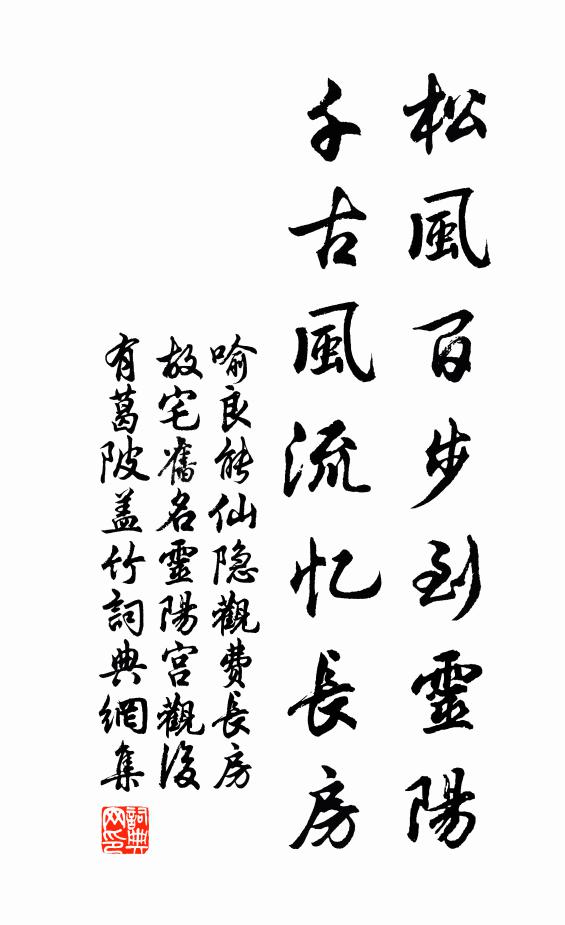 松風百步到靈陽
千古風流忆長房
喻良能仙隐觀费長房
故宅舊名靈陽宫觀後
有葛陂盖竹詞典網集
詞典网印